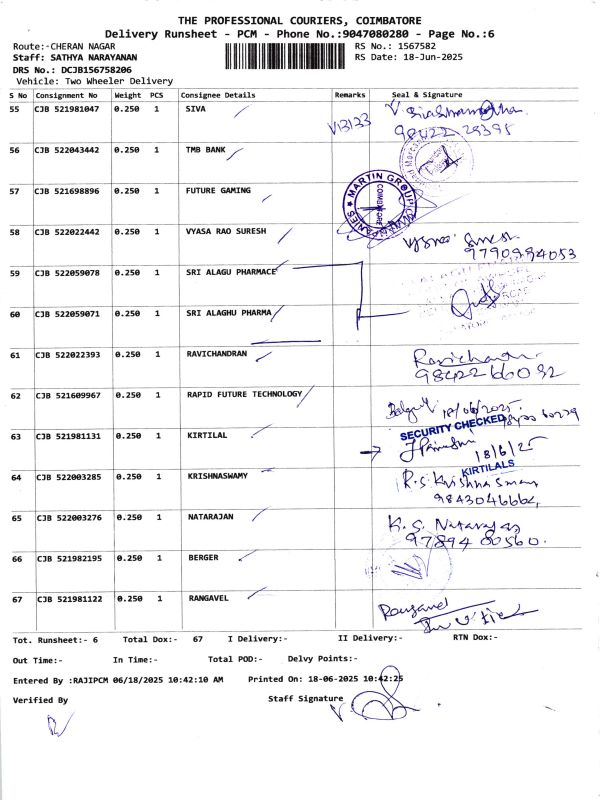 THE PROFESSIONAL COURIERS, COIMBATORE
Delivery Runsheet - PCM - Phone No.:9047080280 - Page No.:6
Route:-CHERAN NAGAR
RS No.: 1567582
Staff: SATHYA NARAYANAN
RS Date: 18-Jun-2025
DRS No.: DCJB156758206
Vehicle: Two Wheeler Delivery
S No Consignment No Weight PCS Consignee Details Remarks Seal & Signature
55 CJB 521981047 0.250 1 SIVA
56 CJB 522043442 0.250 1 TMB BANK
57 CJB 521698896 0.250 1 FUTURE GAMING
MARTIN GROUP COIMBATORE
58 CJB 522022442 0.250 1 VYASA RAO SURESH
9790994053
59 CJB 522059078 0.250 1 SRI ALAGU PHARMACE
60 CJB 522059071 0.250 1 SRI ALAGHU PHARMA
61 CJB 522022393 0.250 1 RAVICHANDRAN Ravichandran
9842266092
62 CJB 521609967 0.250 1 RAPID FUTURE TECHNOLOGY 18/06/2025
SECURITY CHECKED
63 CJB 521981131 0.250 1 KIRTILAL
18/6/25
KIRTILALS
64 CJB 522003285 0.250 1 KRISHNASWAMY R.S. Krishnaswamy
9843046664
65 CJB 522003276 0.250 1 NATARAJAN K.S. Natarajan
97894 80560.
66 CJB 521982195 0.250 1 BERGER
67 CJB 521981122 0.250 1 RANGAVEL
Tot. Runsheet:- 6 Total Dox:- 67 I Delivery:- II Delivery:- RTN Dox:-
Out Time:- In Time:- Total POD:- Delvy Points:-
Entered By :RAJIPCM 06/18/2025 10:42:10 AM Printed On: 18-06-2025 10:42:25
Verified By Staff Signature